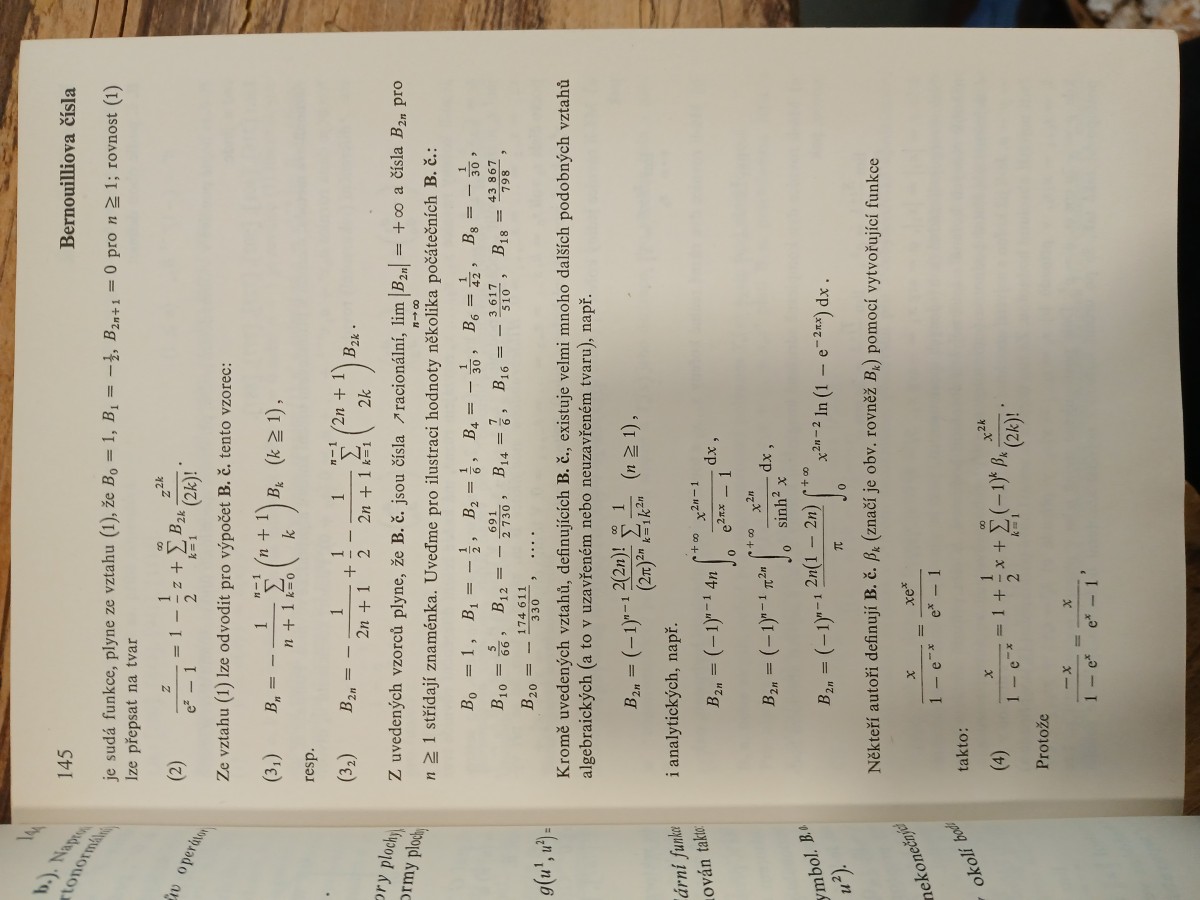 145 Bernouilliova čísla
je sudá funkce, plyne ze vztahu (1), že B₀ = 1, B₁ = −½, B₂ₙ₊₁ = 0 pro n ≧ 1; rovnost (1)
lze přepsat na tvar
(2) \frac{z}{e^z − 1} = 1 − \frac{1}{2} z + \sum_{k=1}^{∞} B_{2k} \frac{z^{2k}}{(2k)!} .
Ze vztahu (1) lze odvodit pro výpočet B. č. tento vzorec:
(3₁) B_n = − \frac{1}{n + 1} \sum_{k=0}^{n−1} \binom{n + 1}{k} B_k (k ≧ 1) ,
resp.
(3₂) B_{2n} = − \frac{1}{2n + 1} + \frac{1}{2} − \frac{1}{2n + 1} \sum_{k=1}^{n−1} \binom{2n + 1}{2k} B_{2k} .
Z uvedených vzorců plyne, že B. č. jsou čísla ↗racionální, \lim_{n→∞} |B_{2n}| = +∞ a čísla B_{2n} pro
n ≧ 1 střídají znaménka. Uveďme pro ilustraci hodnoty několika počátečních B. č.:
B₀ = 1 , B₁ = − \frac{1}{2} , B₂ = \frac{1}{6} , B₄ = − \frac{1}{30} , B₆ = \frac{1}{42} , B₈ = − \frac{1}{30} ,
B₁₀ = \frac{5}{66} , B₁₂ = − \frac{691}{2 730} , B₁₄ = \frac{7}{6} , B₁₆ = − \frac{3 617}{510} , B₁₈ = \frac{43 867}{798} ,
B₂₀ = − \frac{174 611}{330} , ....
Kromě uvedených vztahů, definujících B. č., existuje velmi mnoho dalších podobných vztahů
algebraických (a to v uzavřeném nebo neuzavřeném tvaru), např.
B_{2n} = (−1)^{n−1} \frac{2(2n)!}{(2π)^{2n}} \sum_{k=1}^{∞} \frac{1}{k^{2n}} (n ≧ 1) ,
i analytických, např.
B_{2n} = (−1)^{n−1} 4n \int_0^{+∞} \frac{x^{2n−1}}{e^{2πx} − 1} dx ,
B_{2n} = (−1)^{n−1} π^{2n} \int_0^{+∞} \frac{x^{2n}}{sinh² x} dx ,
B_{2n} = (−1)^{n−1} \frac{2n(1 − 2n)}{π} \int_0^{+∞} x^{2n−2} ln (1 − e^{−2πx}) dx .
Někteří autoři definují B. č. β_k (značí je obv. rovněž B_k) pomocí vytvořující funkce
\frac{x}{1 − e^{−x}} = \frac{xe^x}{e^x − 1}
takto:
(4) \frac{x}{1 − e^{−x}} = 1 + \frac{1}{2} x + \sum_{k=1}^{∞} (−1)^k β_k \frac{x^{2k}}{(2k)!} .
Protože
\frac{−x}{1 − e^x} = \frac{x}{e^x − 1} ,
b.). Napro
rtonormáln
operátor
ory plochy
ormy plochy
g(u¹, u²) =
ární funkc
nován takto
ymbol. B.
u²).
nekonečných
okolí bod